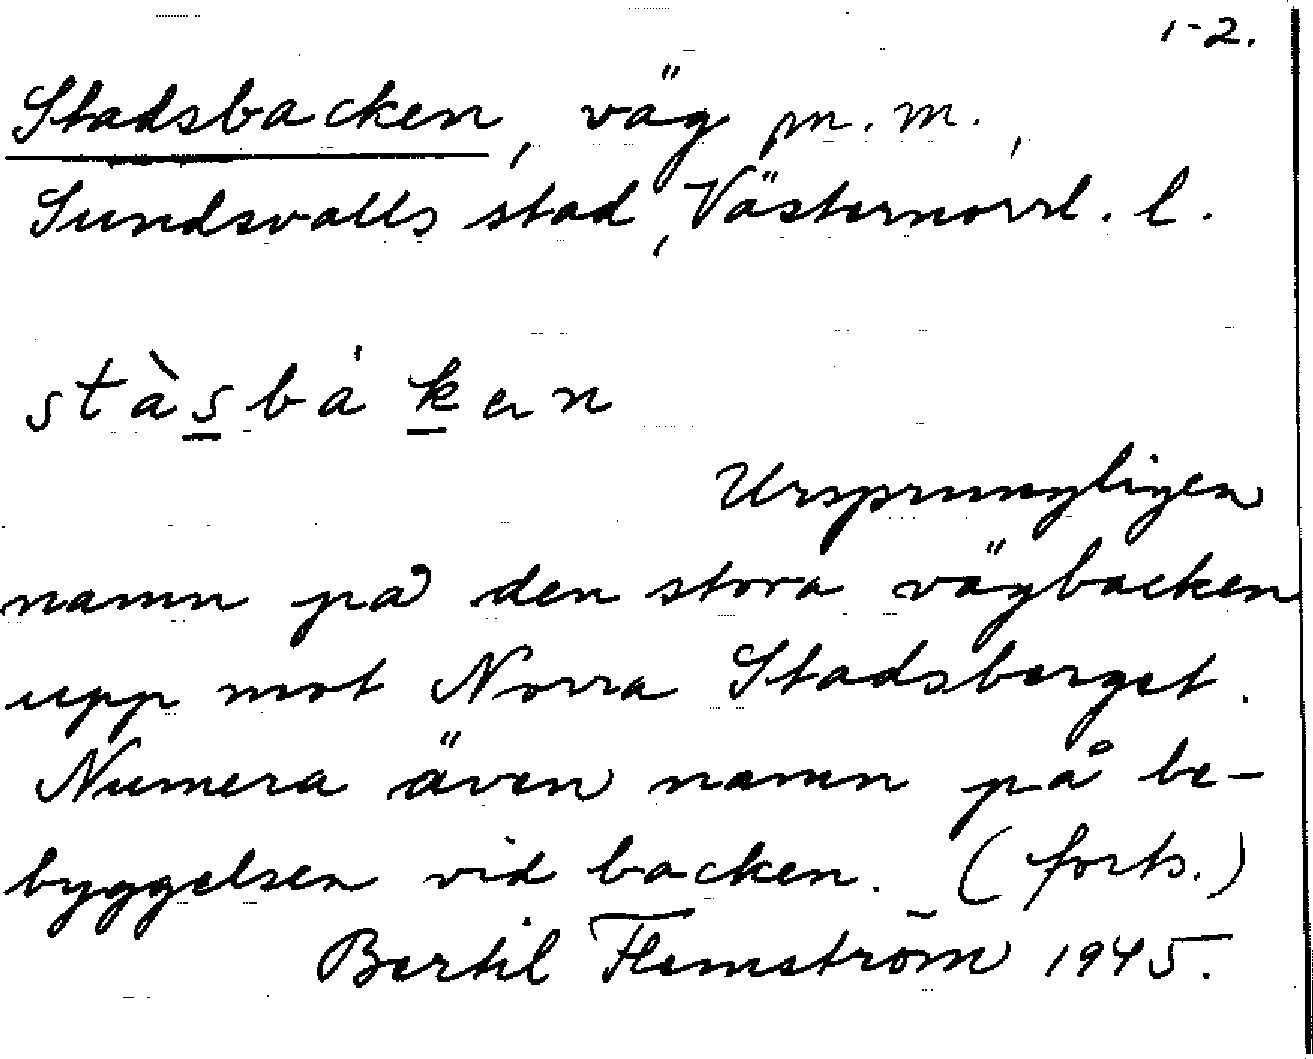 1-2.
Stadsbacken, väg m.m.,
Sundsvalls stad, Västernorrl. l.
stàsbákan
Ursprungligen
namn på den stora vägbacken
upp mot Norra Stadsberget.
Numera även namn på be-
byggelsen vid backen. (forts.)
Bertil Flemström 1945.